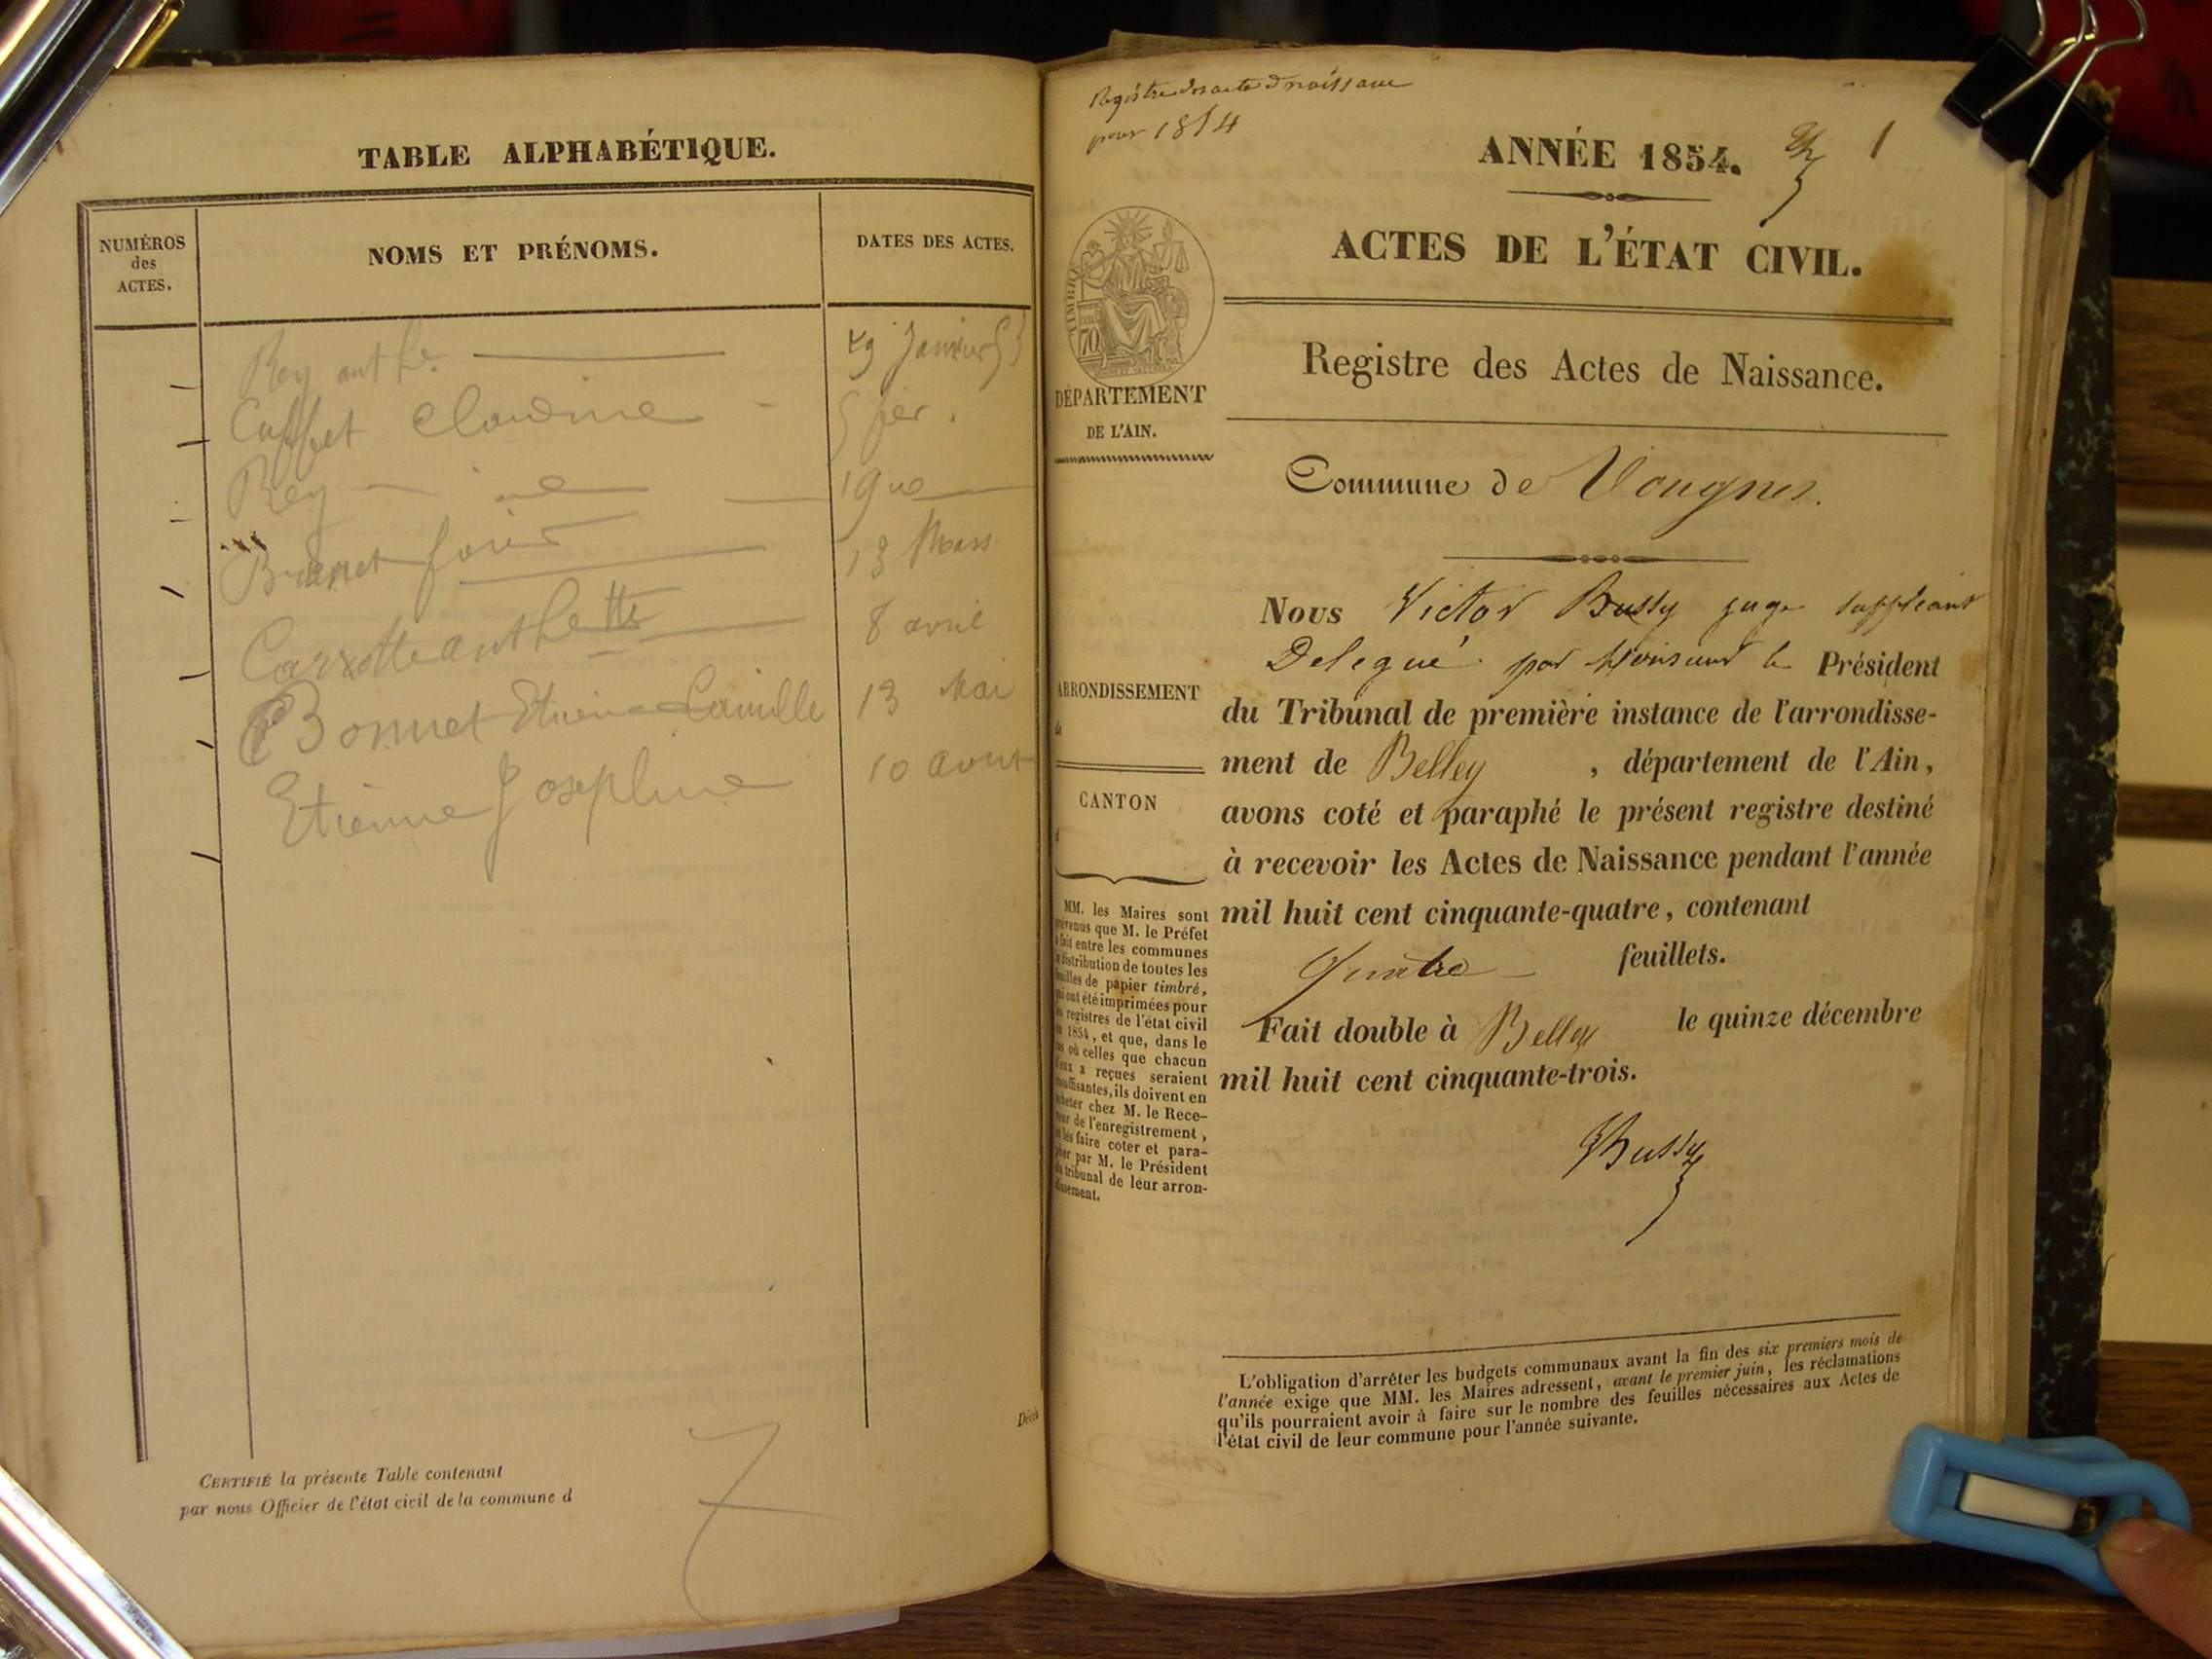 TABLE ALPHABÉTIQUE.
NUMÉROS
des
ACTES.
NOMS ET PRÉNOMS.
DATES DES ACTES.
Rey anth.e 29 Janvier 53
Claudine 5 fer.
Rey 19
Brunet 13 Mars
8 avril
Bonnet Etienne Camille 13 Mai
Etienne Josephine 10 aout
CERTIFIÉ la présente Table contenant
par nous Officier de l'état civil de la commune d
Décès
Registre des acte d naissance
pour 1854
ANNÉE 1854.
1
ACTES DE L'ÉTAT CIVIL.
TIMBRE
70
Registre des Actes de Naissance.
DÉPARTEMENT
DE L'AIN.
Commune de Vougnes.
Nous Victor Bussy juge suppléant
Delegué par Monsieur le Président
du Tribunal de première instance de l'arrondisse-
ment de Belley , département de l'Ain,
avons coté et paraphé le présent registre destiné
à recevoir les Actes de Naissance pendant l'année
mil huit cent cinquante-quatre, contenant
Quatre feuillets.
Fait double à Belley le quinze décembre
mil huit cent cinquante-trois.
Bussy
ARRONDISSEMENT
de
CANTON
d
MM. les Maires sont
prévenus que M. le Préfet
a fait entre les communes
la distribution de toutes les
feuilles de papier timbré,
qui ont été imprimées pour
les registres de l'état civil
en 1854, et que, dans le
cas où celles que chacun
d'eux a reçues seraient
insuffisantes, ils doivent en
acheter chez M. le Rece-
veur de l'enregistrement,
et les faire coter et para-
pher par M. le Président
du tribunal de leur arron-
dissement.
L'obligation d'arrêter les budgets communaux avant la fin des six premiers mois de
l'année exige que MM. les Maires adressent, avant le premier juin, les réclamations
qu'ils pourraient avoir à faire sur le nombre des feuilles nécessaires aux Actes de
l'état civil de leur commune pour l'année suivante.